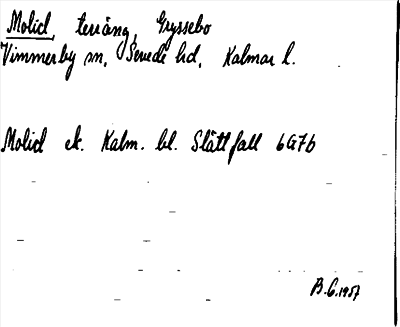 Molid, terräng, Gryssebo
Vimmerby sn, Sevede hd, Kalmar l.
Molid ek. Kalm. bl. Slättfall 6G7b
B.G. 1957